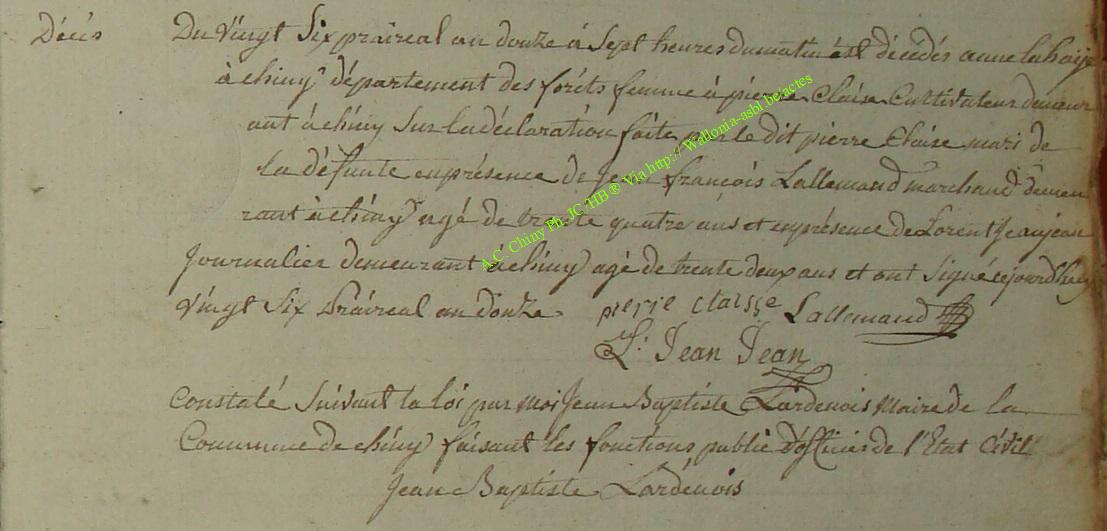 Décés
Du Vingt Six prairéal an douze à Sept heures du matin est décédés anne lahaÿe
à chiny département des foréts femme à pierre Claise Cultivateur demeur
ant à chiny Sur la déclaration faite par le dit pierre Claise mari de
la défunte en présence de Jean françois Lallemand marchand demeu
rant à chiny agé de trente quatre ans et en présence de Lorent Jeanjean
Journalier demeurant à chiny agé de trente deux ans et ont Signé cejourdhuy
Vingt Six Prairéal an douze. pierre claisse Lallemand
L: Jean Jean
Constaté Suivant la loi par moi Jean Baptiste Lardenois Maire de la
Commune de chiny faisant les fonctions public d'officier de l'Etat Civil
Jean Baptiste Lardénois
A.C. Chiny Ph. JC HB ® Via http:// Wallonia-asbl.be/actes